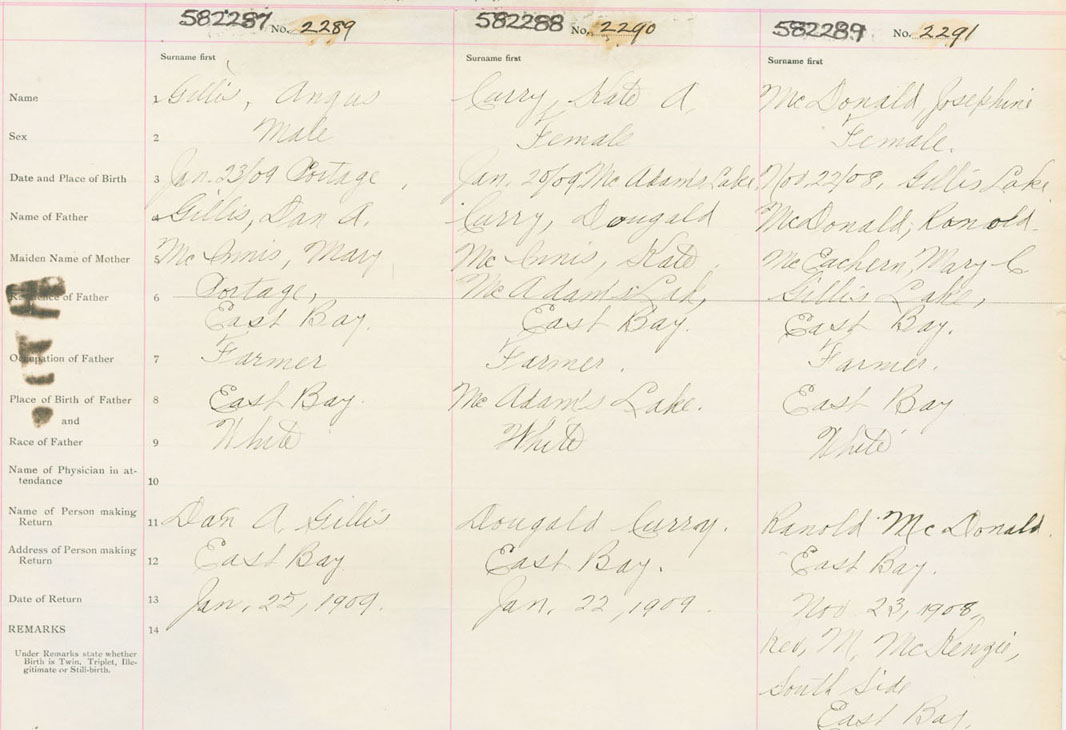 582287 No. 2289 582288 No. 2290 582289 No. 2291
Surname first Surname first Surname first
Name 1 Gillis, Angus Curry, Kate A McDonald, Josephine
Sex 2 Male Female Female.
Date and Place of Birth 3 Jan. 23/09 Portage, Jan. 20/09 McAdams Lake Nov. 22/08, Gillis Lake
Name of Father 4 Gillis, Dan A. Curry, Dougald McDonald, Ronold.
Maiden Name of Mother 5 McInnis, Mary McInnis, Kate. McEachern, Mary C
Residence of Father 6 Portage, McAdams Lak, Gillis Lake,
East Bay. East Bay. East Bay.
Occupation of Father 7 Farmer Farmer. Farmer.
Place of Birth of Father 8 East Bay. McAdam's Lake. East Bay
and
Race of Father 9 White White White
Name of Physician in at-
tendance 10
Name of Person making
Return 11 Dan A. Gillis Dougald Curry. Ranold McDonald.
Address of Person making
Return 12 East Bay East Bay. East Bay.
Date of Return 13 Jan. 25, 1909. Jan. 22, 1909. Nov 23, 1908,
REMARKS 14 Rev, M. McKenzie,
Under Remarks state whether
Birth is Twin, Triplet, Ille-
gitimate or Still-birth.
South Side
East Bay,